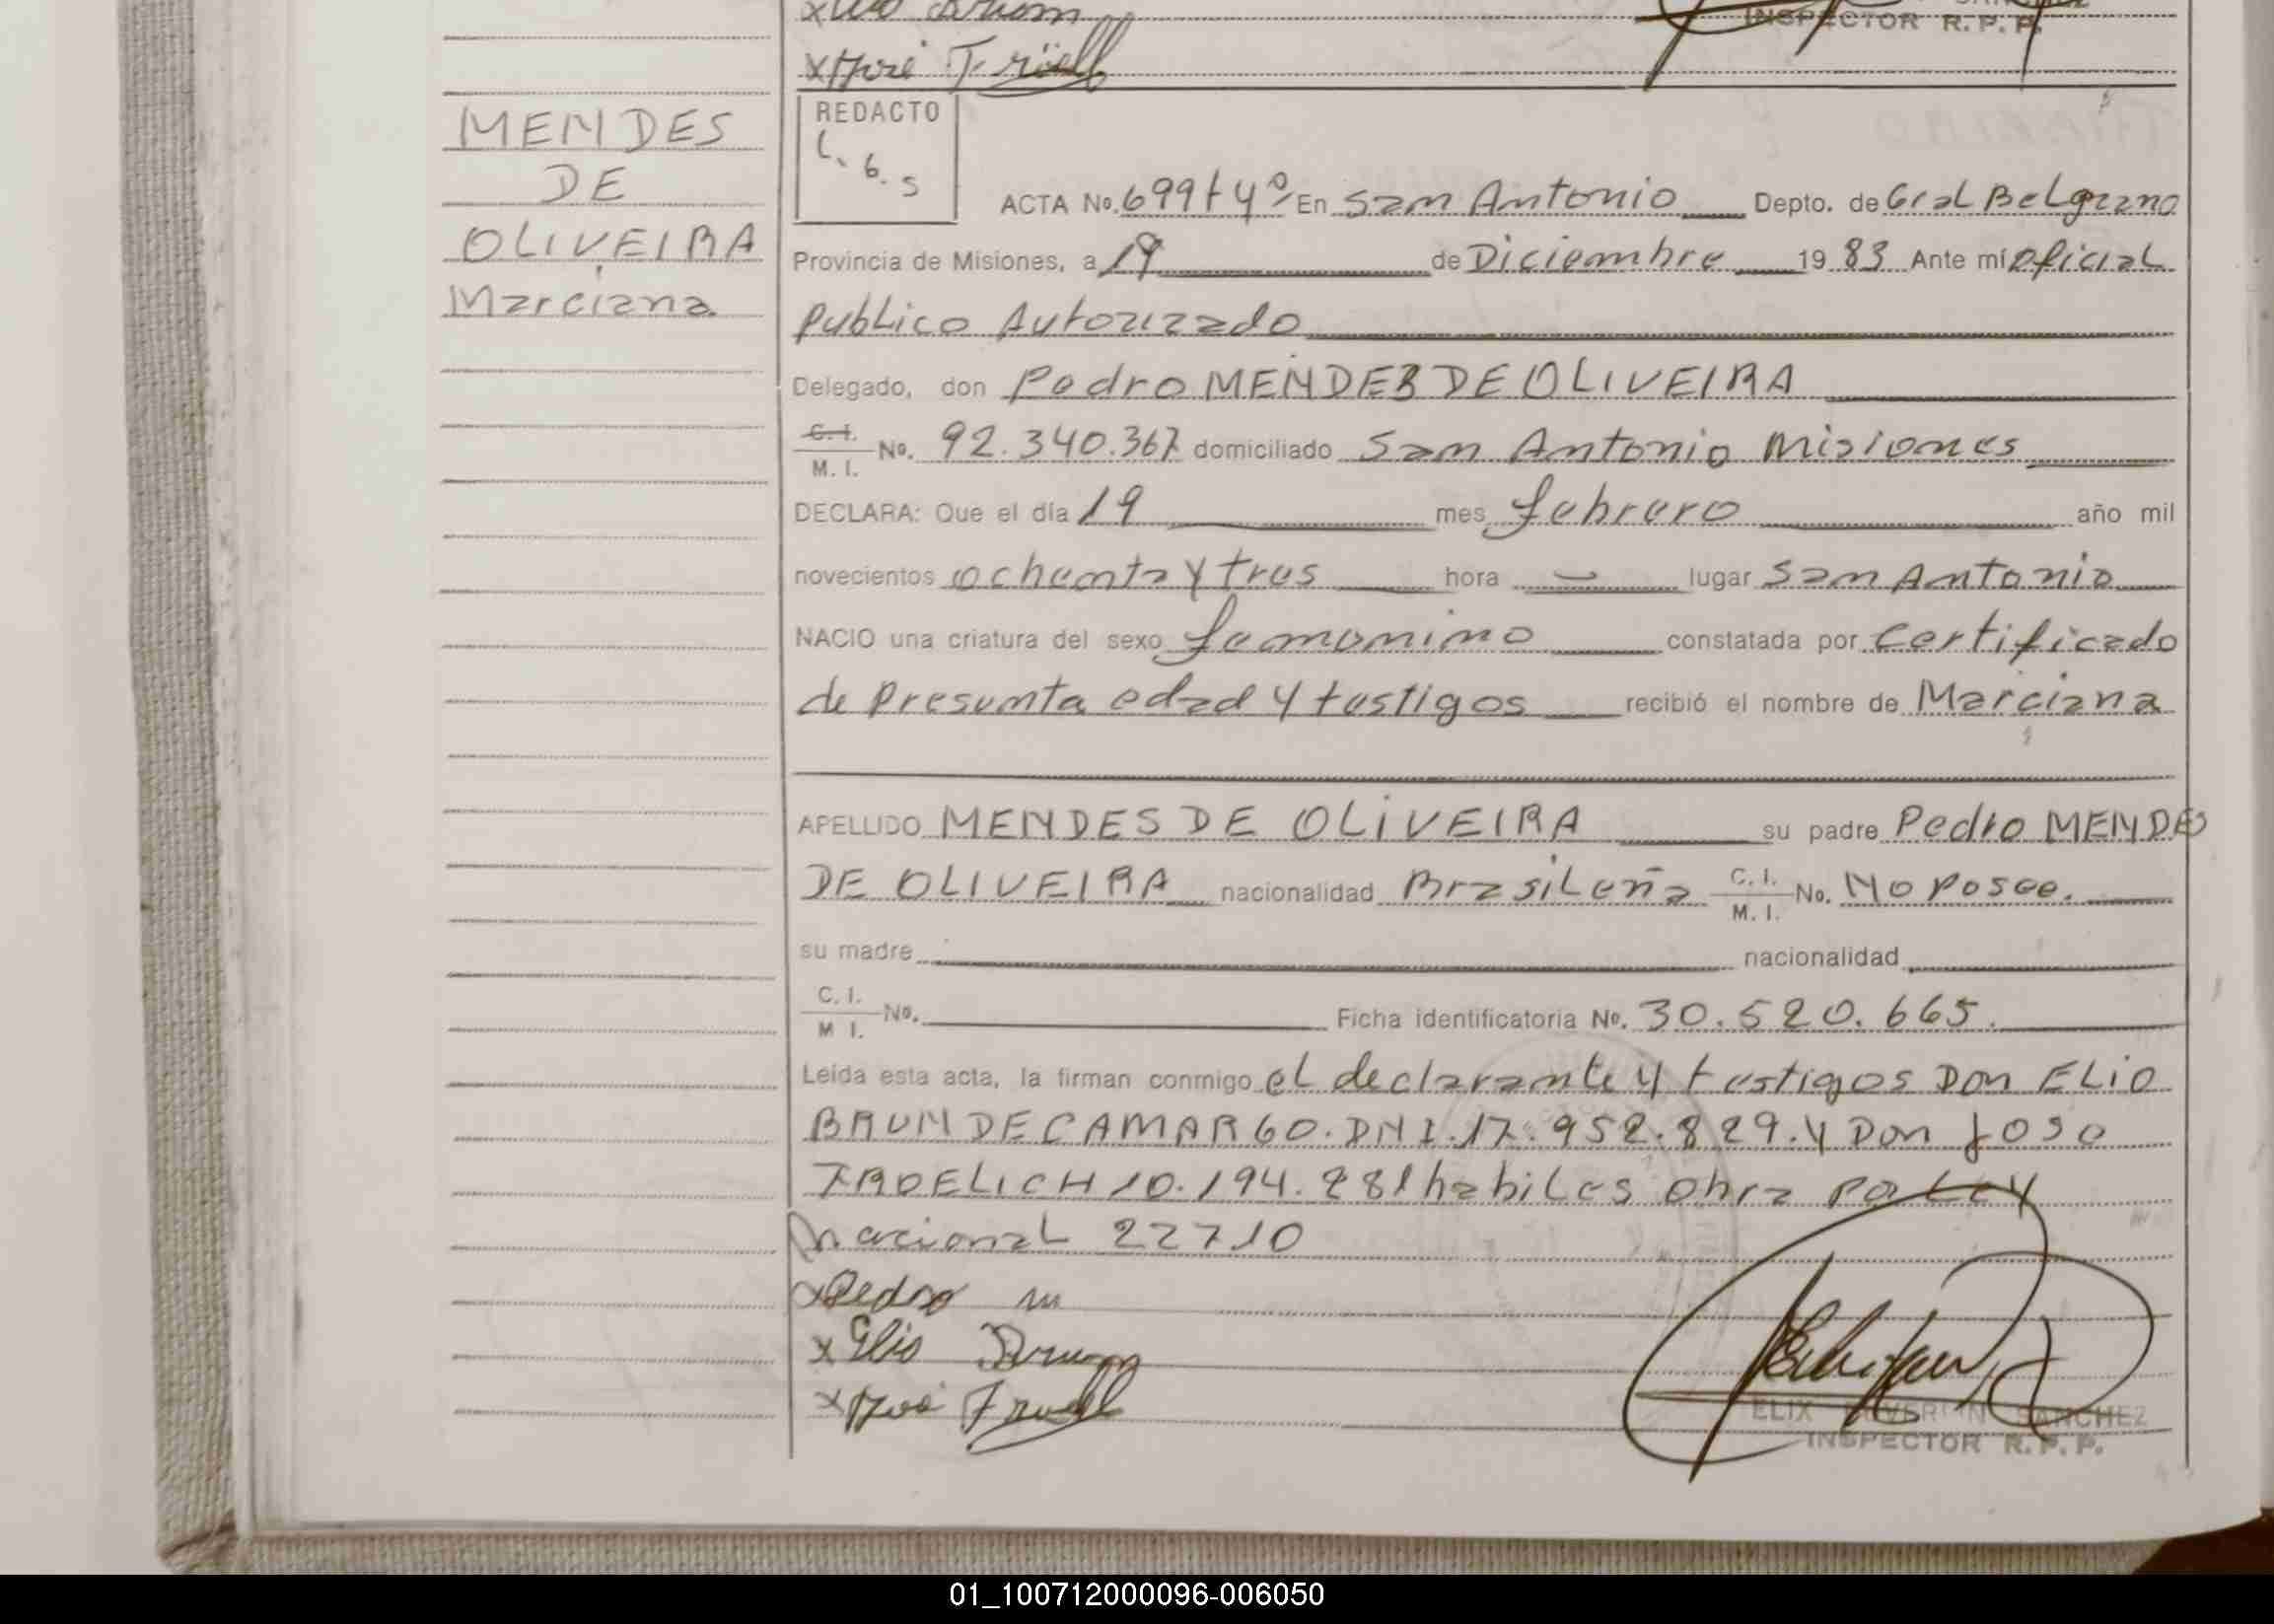 INSPECTOR R. P. P.
MENDES
DE
OLIVEIRA
Marciana
REDACTO
L. 6. S
ACTA No. 699 t 4º En San Antonio Depto. de Gral Belgrano
Provincia de Misiones, a 19 de Diciembre 1983 Ante mí oficial
Publico Autorizado
Delegado, don Pedro MENDES DE OLIVEIRA
C. I.
M. I. No. 92.340.367 domiciliado San Antonio Misiones
DECLARA: Que el día 19 mes febrero año mil
novecientos ochenta y tres hora lugar San Antonio
NACIO una criatura del sexo femenino constatada por Certificado
de Presunta edad y testigos recibió el nombre de Marciana
APELLIDO MENDES DE OLIVEIRA su padre Pedro MENDES
DE OLIVEIRA nacionalidad Brasileña C. I. M. I. No. No posee.
su madre nacionalidad
C. I. M I. No. Ficha identificatoria No. 30.520.665.
Leída esta acta, la firman conmigo el declarante y testigos Don ELIO
BRUM DE CAMARGO. DNI. 17.952.829. y Don Jose
FROELICH 10.194.281 habiles obra por Ley
nacional 22710
x Pedro m
x Elio Brum
x José
SANCHEZ
INSPECTOR R. P. P.
01_100712000096-006050